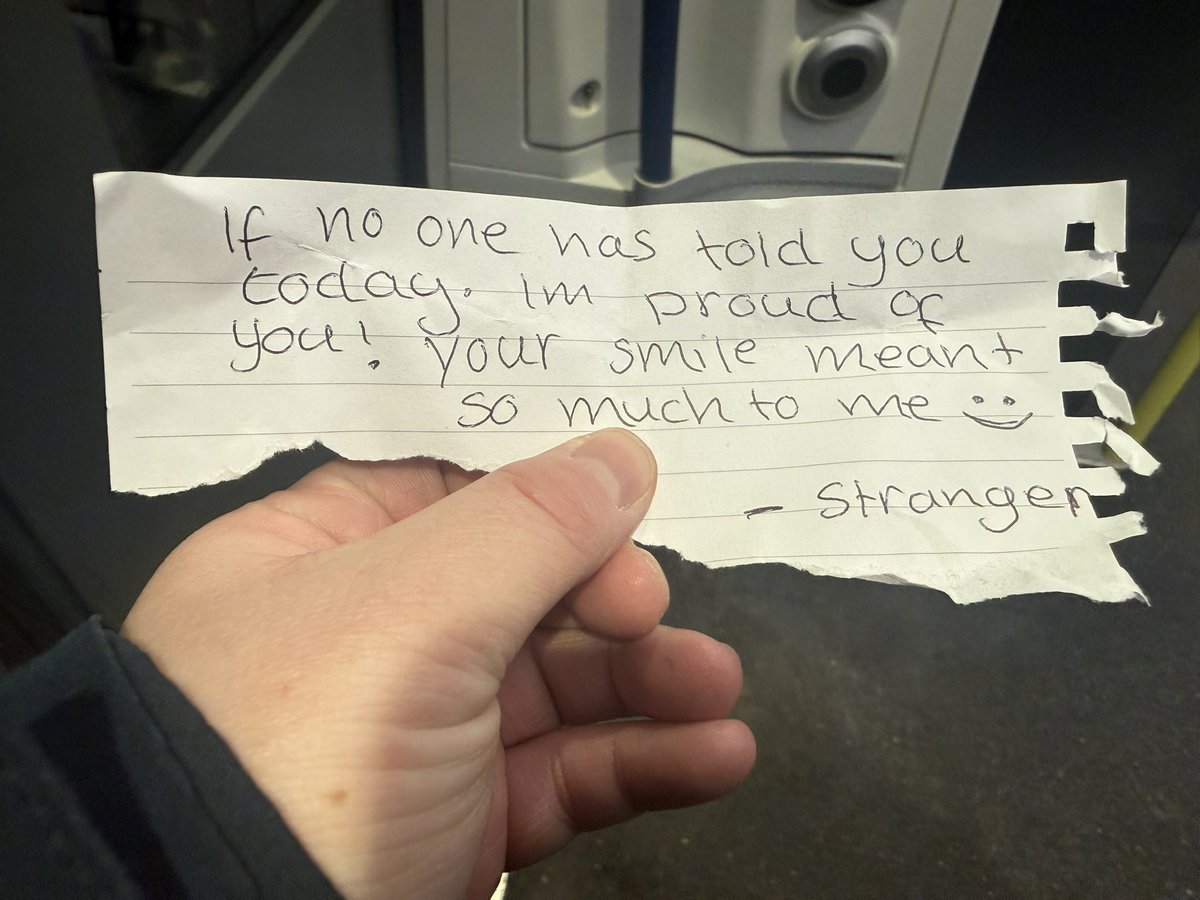 If no one has told you
today. Im proud of
you! your smile meant
so much to me :)
- Stranger